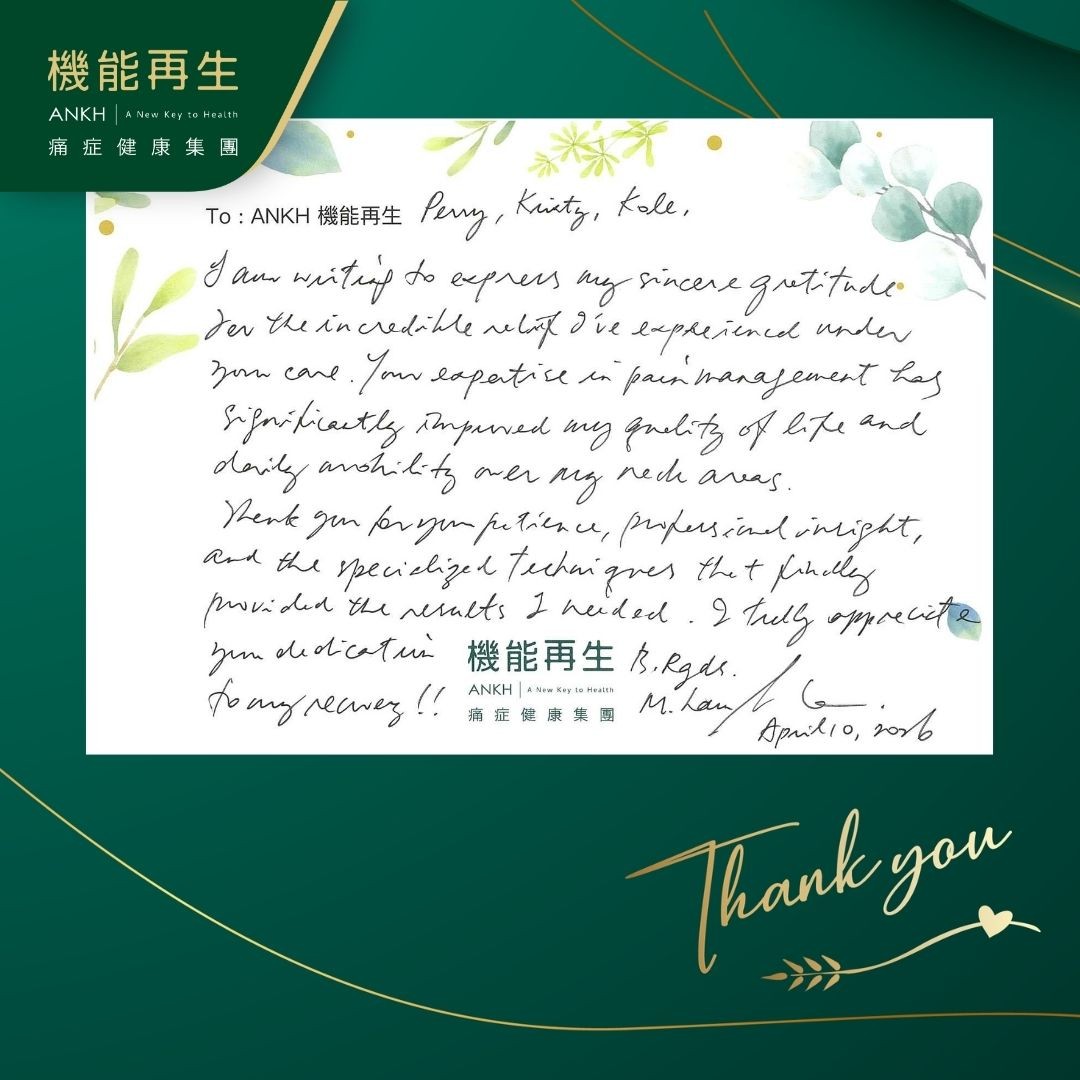 機能再生
ANKH | A New Key to Health
痛症健康集團
To : ANKH 機能再生 Perry, Kristy, Kole,
I am writing to express my sincere gratitude
for the incredible relief I've experienced under
your care. Your expertise in pain management has
significantly improved my quality of life and
daily mobility over my neck areas.
Thank you for your patience, professional insight,
and the specialized techniques that finally
provided the results I needed. I trully appreciate
your dedication
to my recovery !!
機能再生
ANKH | A New Key to Health
痛症健康集團
B. Rgds.
M. Lam
April 10, 2026
Thank you